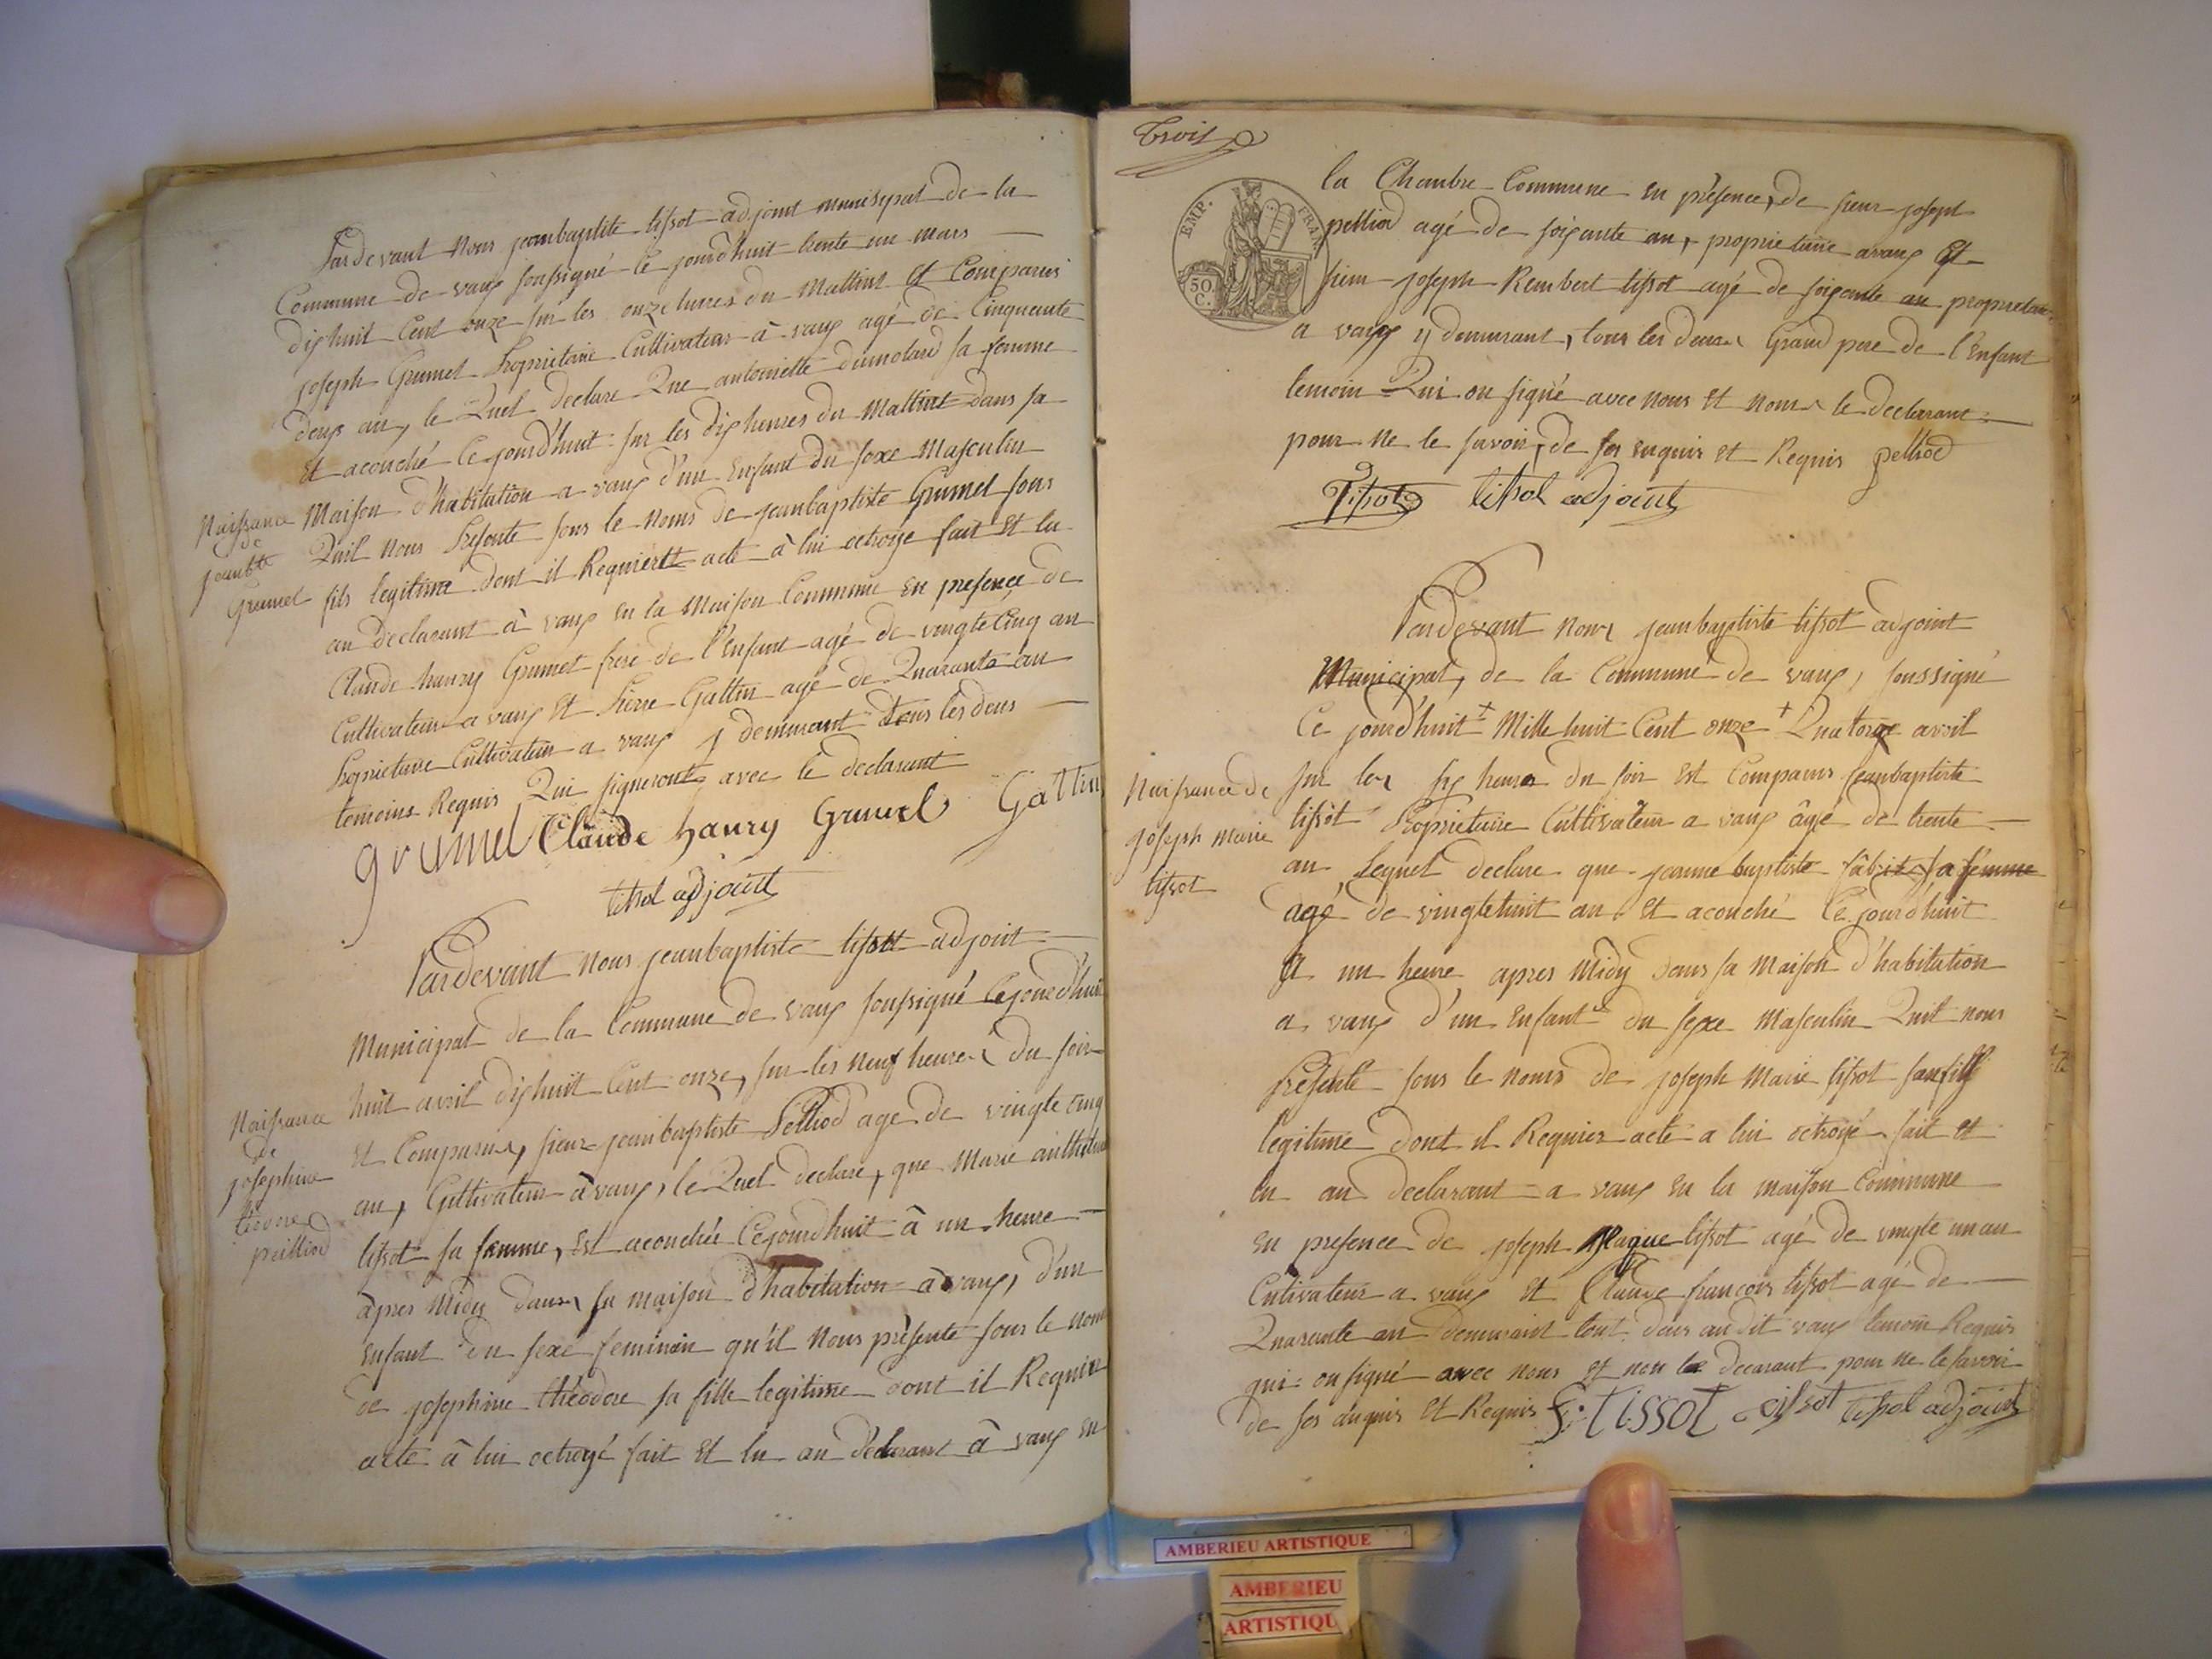 Pardevant nous jeanbaptiste tissot adjoint municipal de la
Commune de vaux soussigné ce jourd'huit trente un mars
dixhuit Cent onze sur les onze heures du Mattint Et Comparus
joseph Grumet Proprietaire Cultivateur à vaux agé de Cinquante
deux an, le Quel declare Que antoinette dumolard sa femme
Et acouché Ce jourd'huit sur les dix heures du Mattint dans sa
Maison d'habitation a vaux d'un Enfant du sexe Masculin
Quil nous Presente sous le Noms de jeanbaptiste Grumet sons
fils legitime dont il Requiertt acte à lui octroye fait Et lu
au declarant à vaux en la Maison Commune en presence de
Claude hanry Grumet frere de l'Enfant agé de vingtecinq an
Cultivateur a vaux Et Pierre Gattin agé de Quarante an
Proprietaire Cultivateur a vaux y demurant tous les deus
temoins Requis Qui signeront avec le declarant
Naissance
de
jeanbte
Grumet
grumel Claude hanry Grumel Gattin
tissot adjoint
Pardevant nous jeanbaptiste tissott adjoint
Municipal de la Commune de vaux soussigné Cejourd'huit
huit avril dixhuit Cent onze, sur les neuf heures du soir
Et Comparus, sieur jeanbaptiste Pelliod age de vingte cinq
an, Cultivateur à vaux, le Quel declare, que Marie
tissot sa femme, Est acouchée Cejourdhuit à un heure
àpres Midy dans sa maison d'habitation à vaux, d'un
Enfant du sexe feminin qu'il Nous présente sous le nom
de josephine théodore sa fille legitime dont il Requier
acte à lui octroyé fait Et lu au déclarant à vaux en
Naissance
de
josephine
teodore
peilliod
Trois
EMP. FRAN.
50 C.
la Chambre Commune en présence, de sieur joseph
pelliod agé de soixante an, proprietaire avaux Et
sieur joseph Rembert tissot agé de soixante an proprietaire
a vaux y demurant, tous les deux Grand pere de l'Enfant
temoin Qui on signé avec nous Et Nom le declarant
pour ne le savoir, de ses enquis Et Requis pelliod
Tissot tissot adjoint
Pardevant nous jeanbaptiste tissot adjoint
Municipal, de la Commune de vaux, soussigné
Ce jourd'huit + Mille huit Cent onze + Quatorze avril
sur les six heures du soir Est Comparus jeanbaptiste
tissot Proprietaire Cultivateur a vaux âgé de trente
an Lequel declare que jeanne baptiste sa femme
agé de vingtehuit an Et acouché Ce jourd'huit
A un heure apres Midy dans sa Maison d'habitation
a vaux d'un Enfant du sexe Masculin Quil nous
Presente sous le noms de joseph Marie tissot son fils
legitime dont il Requier acte a lui octroyé fait et
lu au declarant a vaux en la maison Commune
en presence de joseph tissot agé de vingte un an
Cutivateur a vaux Et Claude francois tissot agé de
Quarante an demurant tout deus audit vaux temoin Requis
qui on signé avec nous et non le decarant pour ne le savoir
de ses anquis Et Requis F. tissot tissot tissot adjoint
Naissance de
joseph marie
tissot
AMBERIEU ARTISTIQUE
AMBERIEU
ARTISTIQU